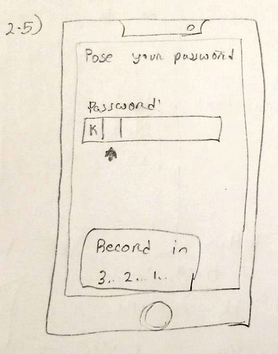 2.5)
Pose your password
Password:
K
Record in
3.. 2... 1...